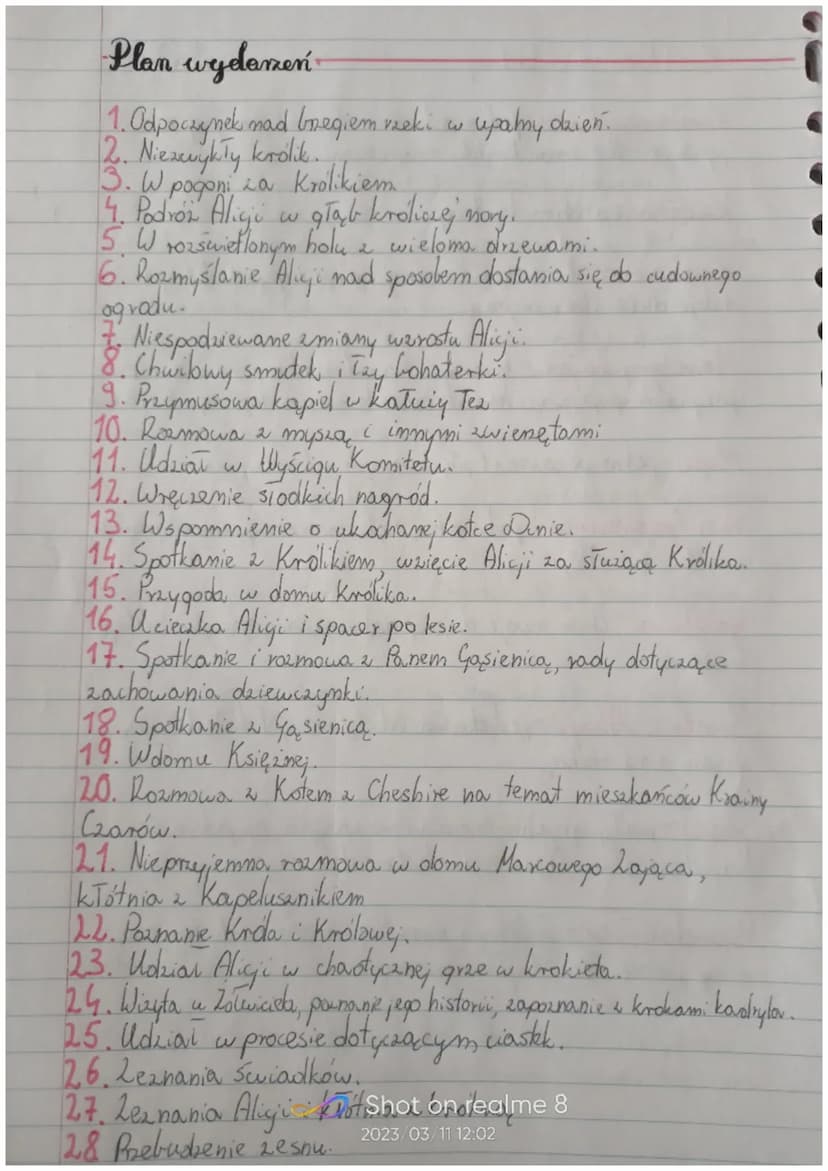 Plan wydarzeń
1. Odpoczynek nad brzegiem rzeki w upalny dzień.
2. Niezwykły królik.
3. W pogoni za Królikiem
4. Podróż Alicji w głąb króliczej nory.
5. W rozświetlonym holu z wieloma drzewami.
6. Rozmyślanie Alicji nad sposobem dostania się do cudownego
ogrodu.
7. Niespodziewane zmiany wzrostu Alicji.
8. Chwilowy smutek i łzy bohaterki.
9. Przymusowa kąpiel w kałuży łez
10. Rozmowa z myszą i innymi zwierzętami
11. Udział w Wyścigu Komitetu.
12. Wręczenie słodkich nagród.
13. Wspomnienie o ukochanej kotce Dinie.
14. Spotkanie z Królikiem, wzięcie Alicji za służącą Królika.
15. Przygoda w domu Królika.
16. Ucieczka Alicji i spacer po lesie.
17. Spotkanie i rozmowa z Panem Gąsienicą, rady dotyczące
zachowania dziewczynki.
18. Spotkanie z Gąsienicą.
19. W domu Księżnej.
20. Rozmowa z Kotem z Cheshire na temat mieszkańców Krainy
Czarów.
21. Nieprzyjemna rozmowa w domu Marcowego Zająca,
kłótnia z Kapelusznikiem
22. Poznanie Króla i Królowej.
23. Udział Alicji w chaotycznej grze w krokieta.
24. Wizyta u Żółwiciela, poznanie jego historii, zapoznanie z krokami kadryla.
25. Udział w procesie dotyczącym ciastek.
26. Zeznania świadków.
27. Zeznania Alicji i kłótnia z królową
28 Przebudzenie ze snu.
Shot on realme 8
2023/03/11 12:02